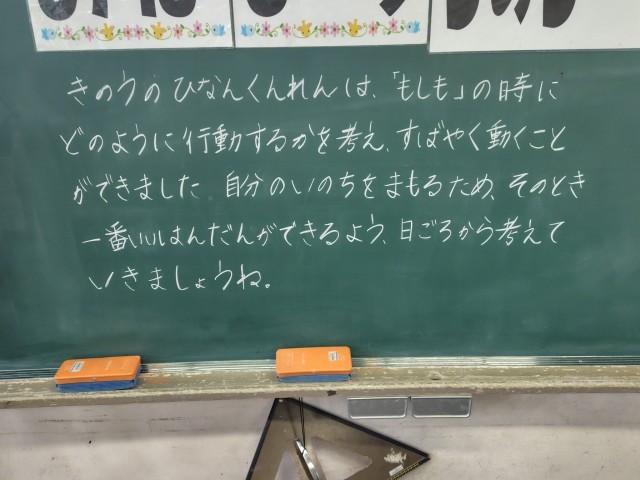 きのうのひなんくんれんは、「もしも」の時に
どのように行動するかを考え、すばやく動くこと
ができました 自分のいのちをまもるため、そのとき
一番いいはんだんができるよう、日ごろから考えて
いきましょうね。